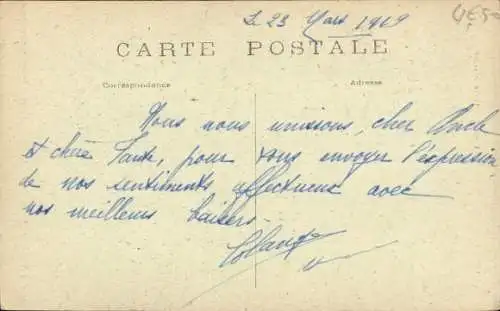 Le 23 Mars 1919
CARTE POSTALE
Correspondance
Adresse
Nous nous unissons, cher Oncle
et chère Tante, pour vous envoyer l'expression
de nos sentiments affectueux avec
nos meilleurs baisers